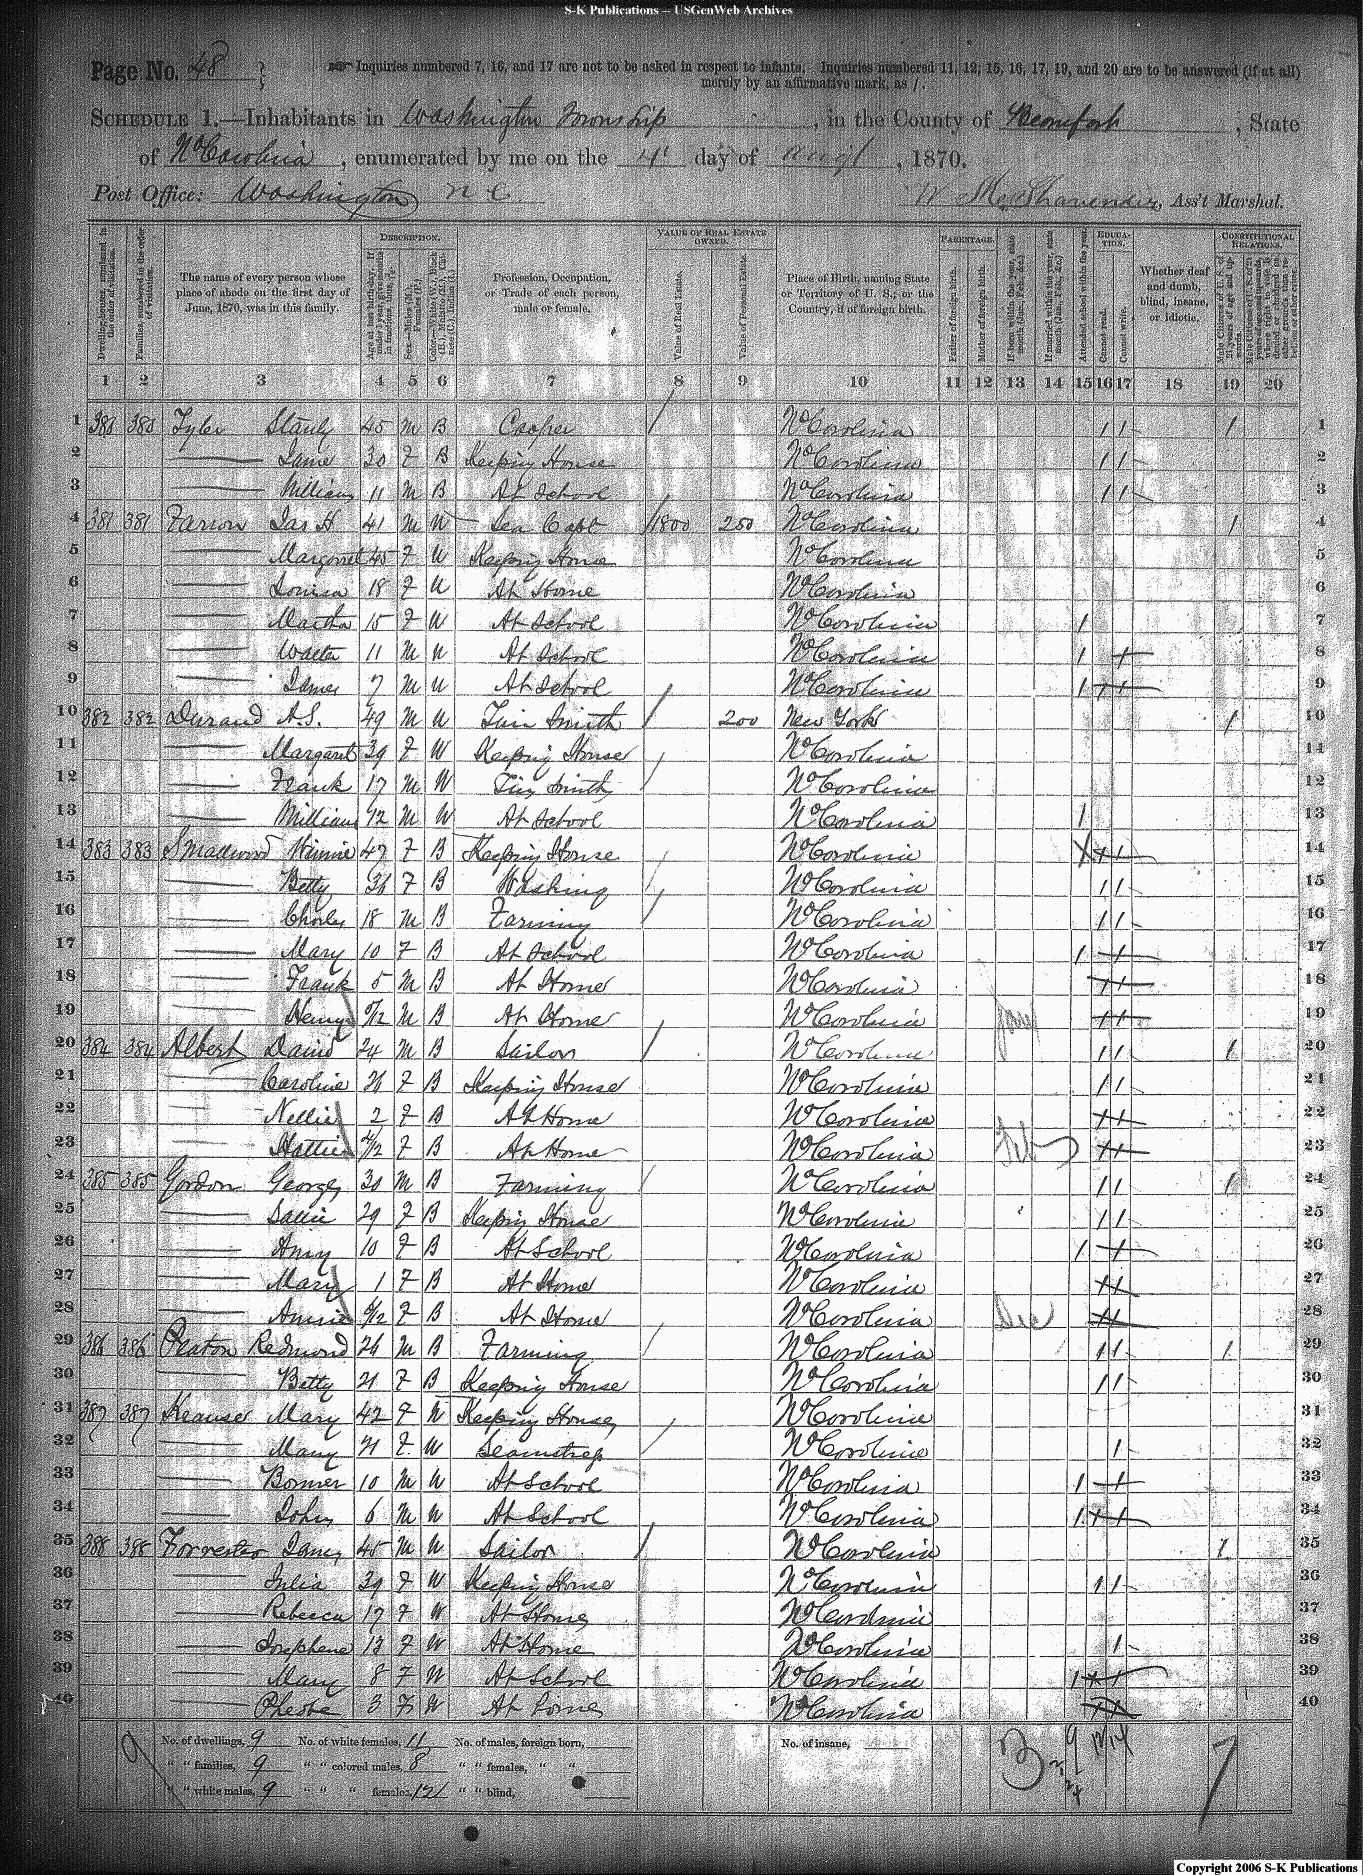 S-K Publications -- USGenWeb Archives
Page No. 48
Inquiries numbered 7, 16, and 17 are not to be asked in respect to infants. Inquiries numbered 11, 12, 15, 16, 17, 19, and 20 are to be answered (if at all)
merely by an affirmative mark, as /.
SCHEDULE 1.—Inhabitants in Washington Township, in the County of Beaufort, State
of No Carolina, enumerated by me on the 4 day of Augt, 1870.
Post Office: Washington N C Ass't Marshal.
DESCRIPTION. VALUE OF REAL ESTATE OWNED. PARENTAGE. EDUCATION. CONSTITUTIONAL RELATIONS.
Dwelling-houses, numbered in the order of visitation.
Families, numbered in the order of visitation.
The name of every person whose place of abode on the first day of June, 1870, was in this family.
Profession, Occupation, or Trade of each person, male or female.
Value of Real Estate.
Value of Personal Estate.
Place of Birth, naming State or Territory of U. S.; or the Country, if of foreign birth.
Father of foreign birth.
Mother of foreign birth.
Attended school within the year.
Cannot read.
Cannot write.
Whether deaf and dumb, blind, insane, or idiotic.
1 2 3 4 5 6 7 8 9 10 11 12 13 14 15 16 17 18 19 20
1 380 380 Tyler Stanly 45 M B Cooper / No Carolina / / / 1
2 —— Jane 30 F B Keeping House No Carolina / / 2
3 —— William 11 M B At School No Carolina / / 3
4 381 381 Farrow Jas H 41 M W Sea Capt / 1800 250 No Carolina / 4
5 —— Margaret 45 F W Keeping House No Carolina 5
6 —— Louisa 18 F W At Home No Carolina 6
7 —— Martha 15 F W At School No Carolina / 7
8 —— Walter 11 M W At School No Carolina / / 8
9 —— James 7 M W At School No Carolina / / / 9
10 382 382 Durand A.S. 49 M W Tin Smith / 200 New York / 10
11 —— Margaret 39 F W Keeping House No Carolina 11
12 —— Frank 17 M W Tin Smith / No Carolina 12
13 —— William 12 M W At School No Carolina / 13
14 383 383 Smallwood Winnie 47 F B Keeping House No Carolina / / 14
15 —— Betty 36 F B Washing / No Carolina / / 15
16 —— Charles 18 M B Farming / No Carolina / / 16
17 —— Mary 10 F B At School No Carolina / / 17
18 —— Frank 5 M B At Home No Carolina / / 18
19 —— Henry 5/12 M B At Home No Carolina Jany / / 19
20 384 384 Albert David 24 M B Sailor / No Carolina / / / 20
21 —— Caroline 26 F B Keeping House No Carolina / / 21
22 —— Nellie 2 F B At Home No Carolina / / 22
23 —— Hattie 4/12 F B At Home No Carolina Feb / / 23
24 385 385 Gordon George 30 M B Farming / No Carolina / / / 24
25 —— Sallie 29 F B Keeping House No Carolina / / 25
26 —— Amy 10 F B At School No Carolina / / 26
27 —— Mary 1 F B At Home No Carolina / / 27
28 —— Annie 6/12 F B At Home No Carolina Dec / / 28
29 386 386 Peaton Redmond 26 M B Farming / No Carolina / / / 29
30 —— Betty 21 F B Keeping House No Carolina / / 30
31 387 387 Keause Mary 42 F W Keeping House No Carolina 31
32 —— Mary 21 F W Seamstress / No Carolina / 32
33 —— Bonner 10 M W At School No Carolina / / 33
34 —— John 6 M W At School No Carolina / / / 34
35 388 388 Forrester James 45 M W Sailor / No Carolina / 35
36 —— Julia 39 F W Keeping House No Carolina / / 36
37 —— Rebecca 17 F W At Home No Carolina 37
38 —— Josephene 13 F W At Home No Carolina / 38
39 —— Mary 8 F W At School No Carolina / / / 39
40 —— Phebe 3 F W At Home No Carolina / / 40
No. of dwellings, 9 No. of white females, 11 No. of males, foreign born, No. of insane,
" " families, 9 " " colored males, 8 " " females, " "
" " white males, 9 " " " females, 12 " " blind,
Copyright 2006 S-K Publications